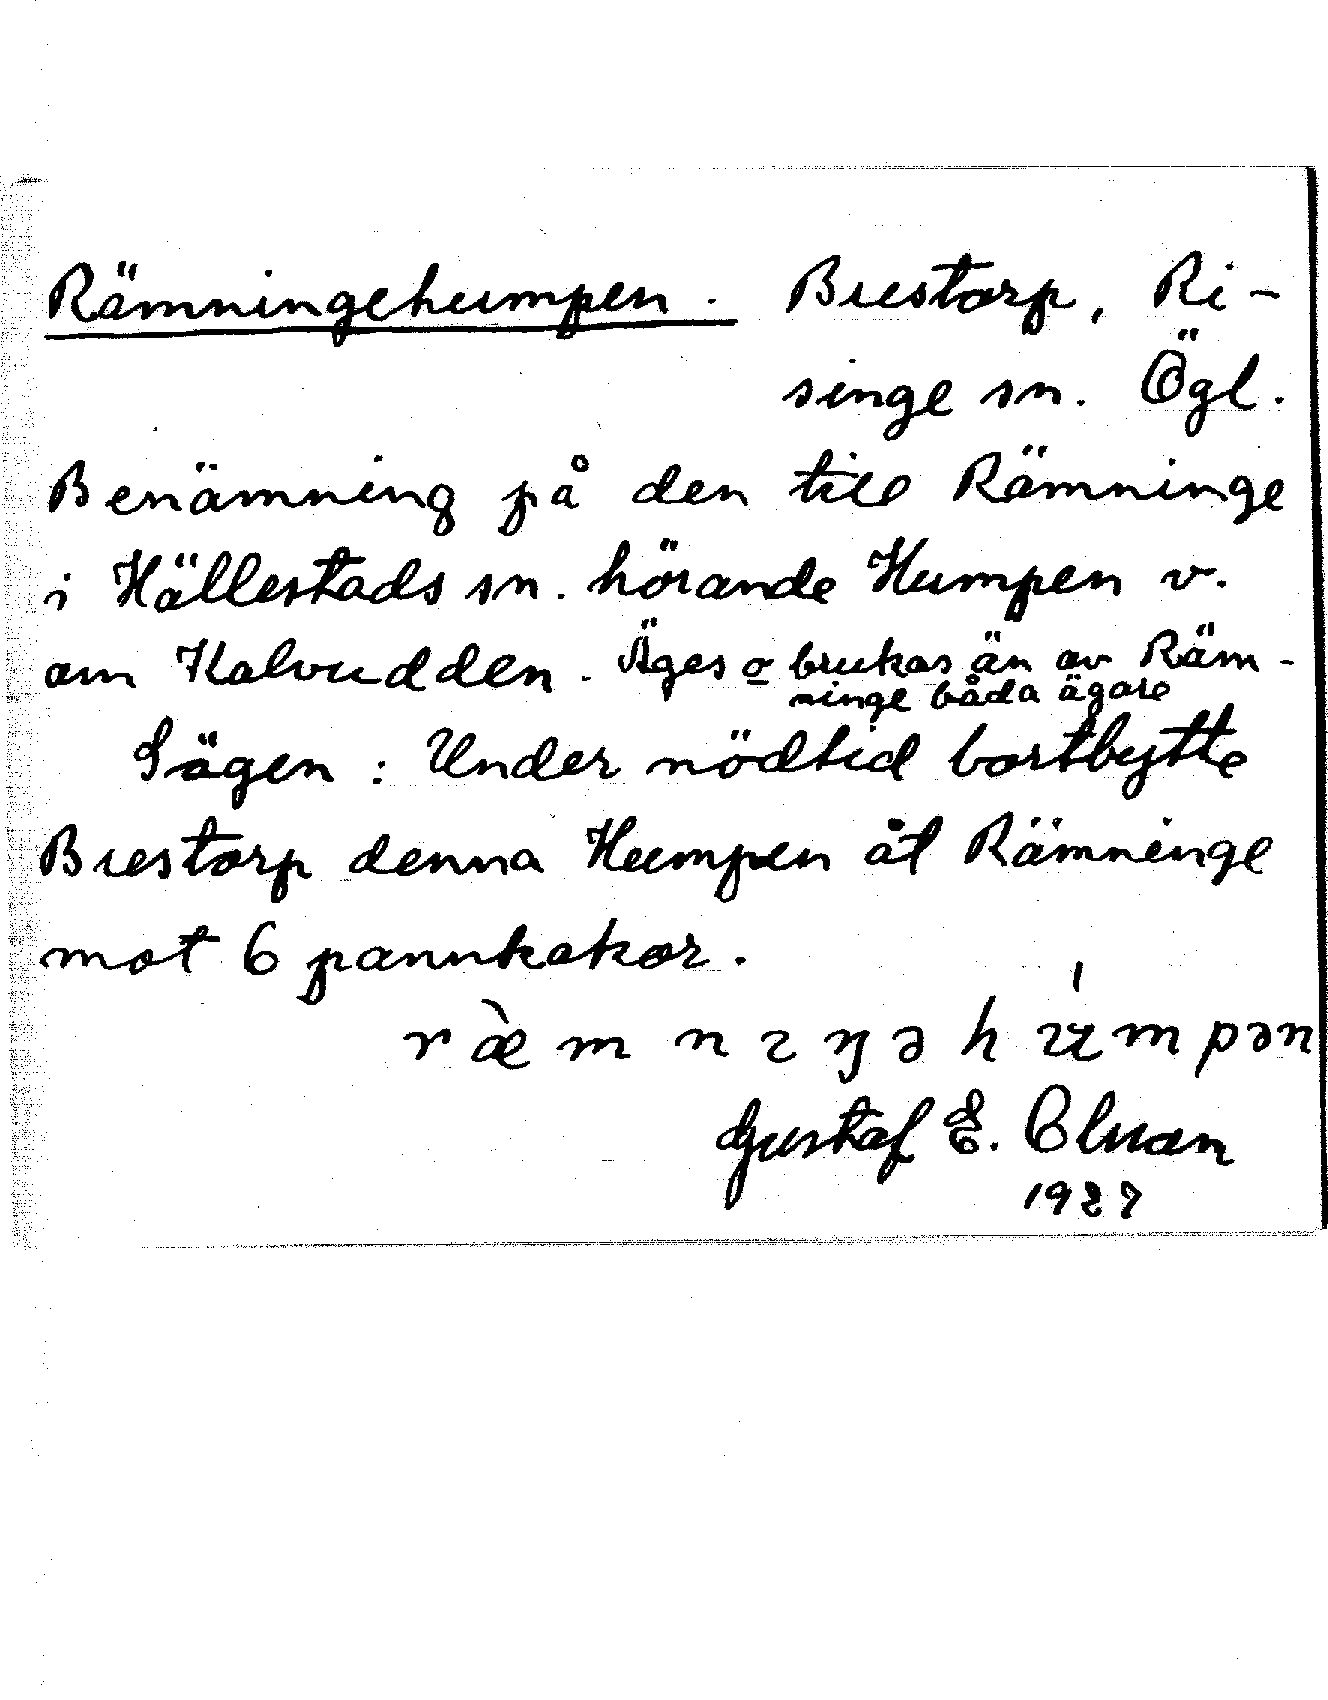 Rämningehumpen. Brestorp, Ri-
singe sn. Ögl.
Benämning på den till Rämninge
i Hällestads sn. hörande Humpen v.
om Kalvudden. Äges o brukas än av Räm-
ninge båda ägare
Sägen: Under nödtid bortbytte
Brestorp denna Humpen åt Rämninge
mot 6 pannkakor.
Gustaf E.
1927